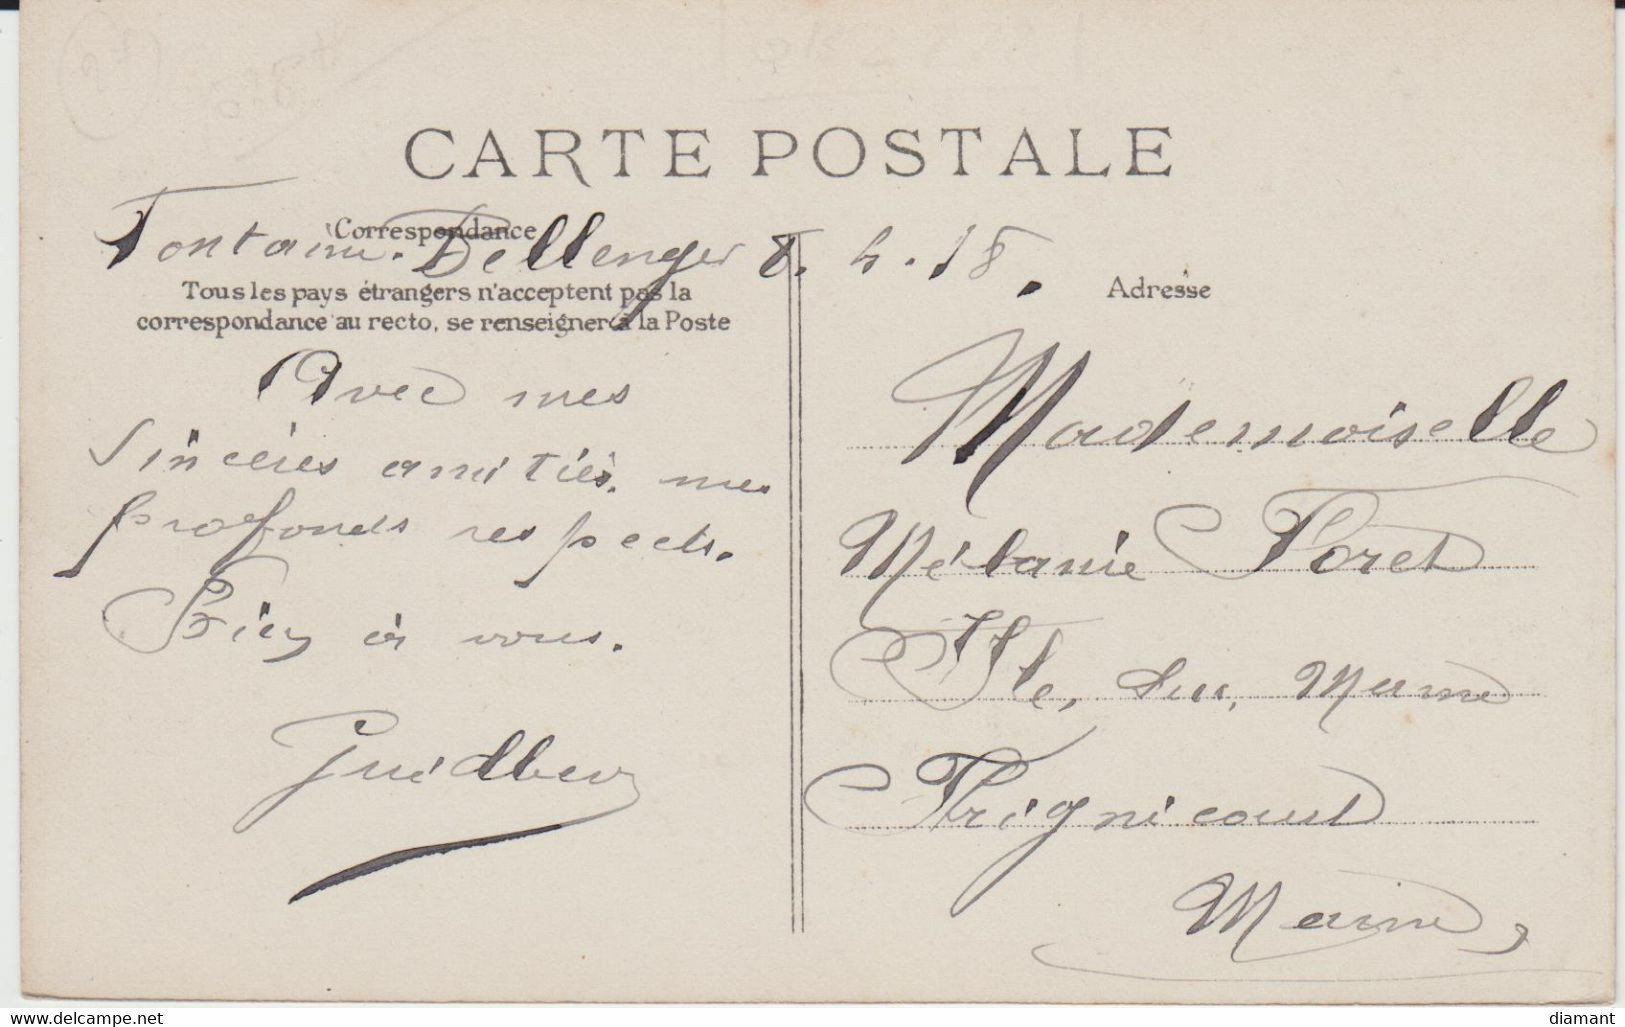 CARTE POSTALE
Correspondance
Fontaine. Bellenger 8. 4. 18.
Tous les pays étrangers n'acceptent pas la
correspondance au recto, se renseigner à la Poste
Avec mes
Sincères amitiés. mes
profonds respects.
Bien à vous.
Adresse
Mademoiselle
Mélanie Foret
Isle, Sur, Marne
Frignicourt
Marne,
www.delcampe.net
diamant